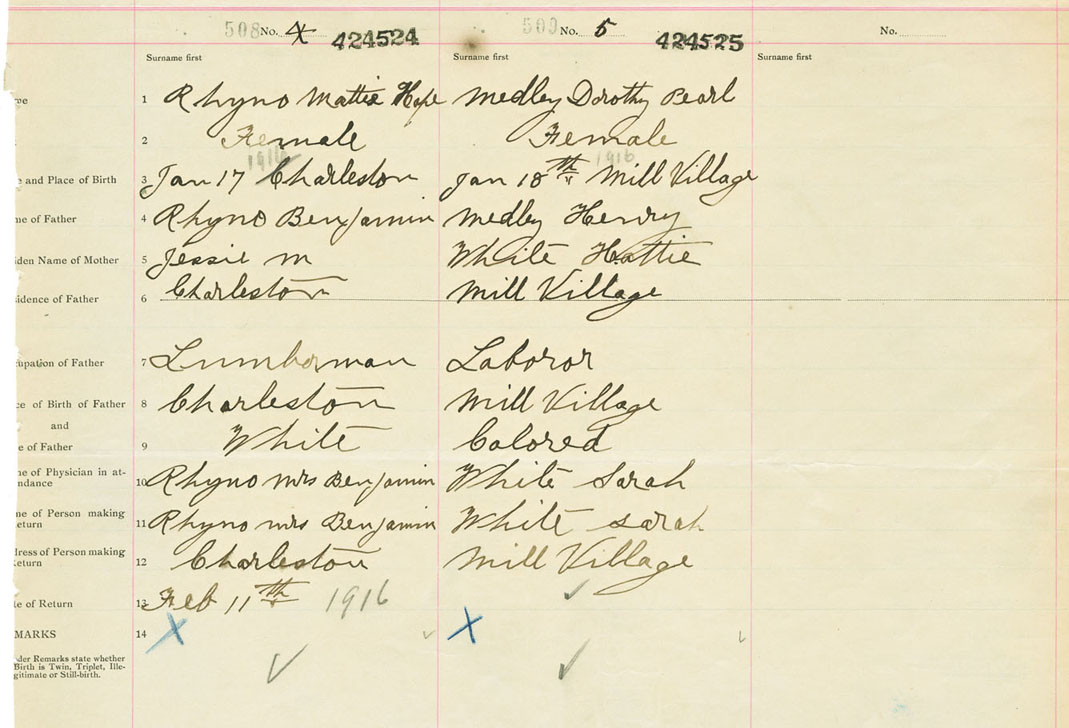 508 No. 4 424524 509 No. 5 424525 No.
Surname first Surname first Surname first
me 1 Rhyno Mattie Hope Medley Dorothy Pearl
2 Female Female
1916 1916
e and Place of Birth 3 Jan 17 Charleston Jan 18th Mill Village
me of Father 4 Rhyno Benjamin Medley Henry
iden Name of Mother 5 Jessie M White Hattie
sidence of Father 6 Charleston Mill Village
cupation of Father 7 Lumberman Laboror
ce of Birth of Father 8 Charleston Mill Village
and
e of Father 9 White Colored
me of Physician in at-
ndance 10 Rhyno Mrs Benjamin White Sarah
me of Person making
Return 11 Rhyno Mrs Benjamin White Sarah
dress of Person making
Return 12 Charleston Mill Village
te of Return 13 Feb 11th 1916
MARKS 14 X X
der Remarks state whether
Birth is Twin, Triplet, Ille-
gitimate or Still-birth.